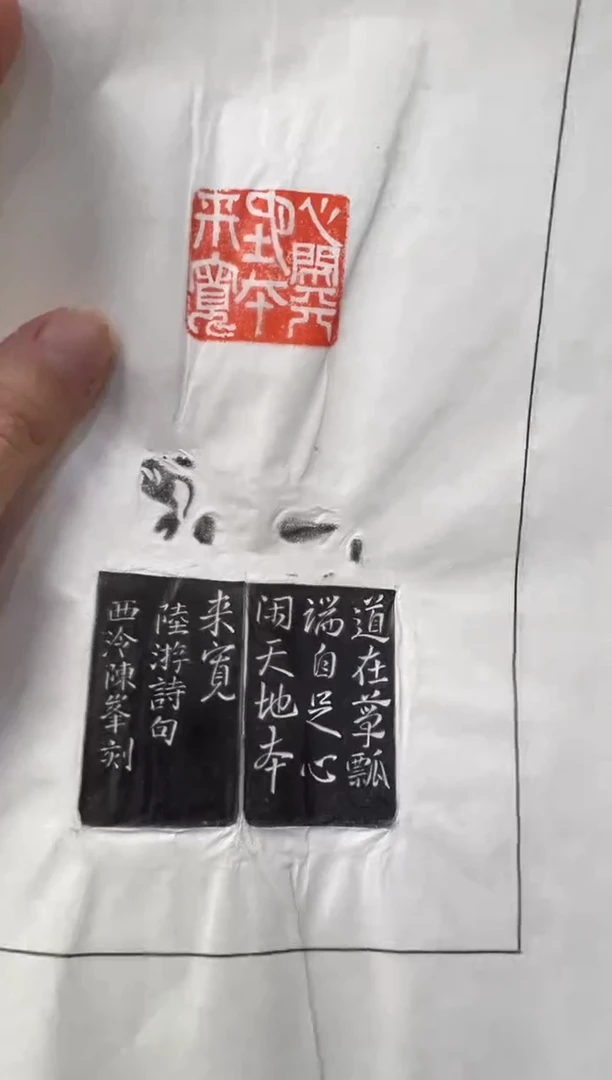 心閑天
地本
来寬
道在箪瓢
端自足心
闲天地本
来寬
陸游詩句
西泠陳峯刻